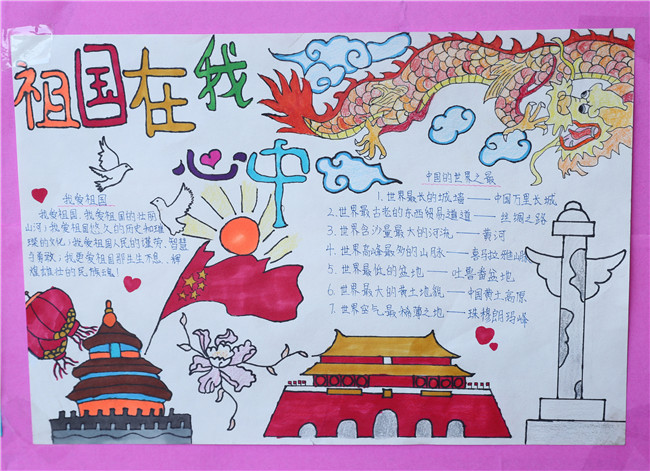 祖国在我
心中
我爱祖国
我爱祖国,我爱祖国的壮丽
山河;我爱祖国悠久的历史和璀
璨的文化;我爱祖国人民的谨劳、智慧
与勇敢;我更爱祖国那生生不息、辉
煌雄壮的民族魂!
中国的世界之最
1.世界最长的城墙——中国万里长城
2.世界最古老的东西贸易通道——丝绸之路
3.世界含沙量最大的河流——黄河
4.世界高峰最多的山脉——喜马拉雅山脉
5.世界最低的盆地——吐鲁番盆地
6.世界最大的黄土地貌——中国黄土高原
7.世界空气最稀薄之地——珠穆朗玛峰